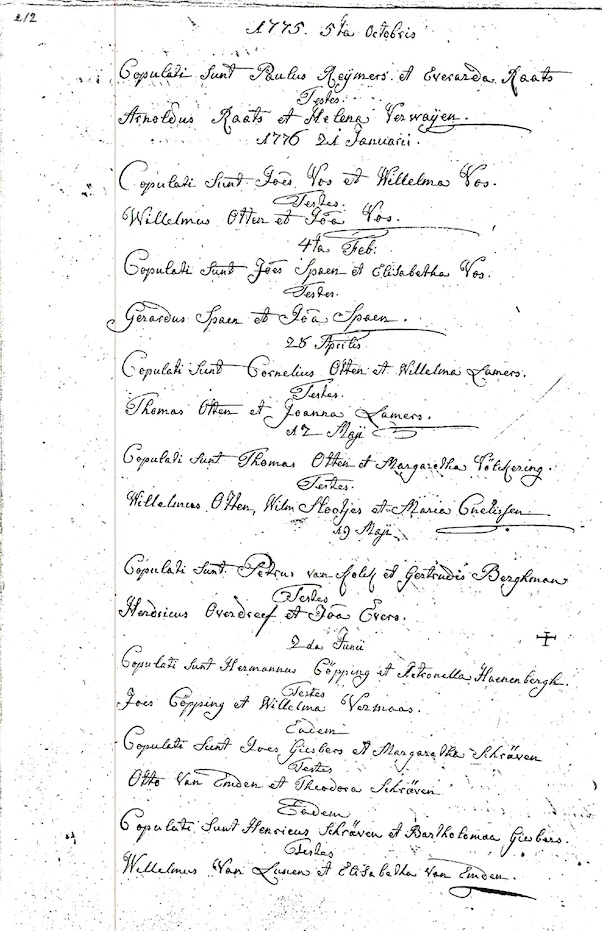 212
1775. 5ta Octobris
Copulati Sunt Paulus Reijmers et Everarda Raats
Testes.
Arnoldus Raats et Helena Verwaijen.
1776 21 Januarii.
Copulati Sunt Joēs Vos et Willelma Vos.
Testes.
Willelmus Otten et Joā Vos.
4ta Feb:
Copulati Sunt Joēs Spaen et Elisabetha Vos.
Testes.
Gerardus Spaen et Joā Spaen.
28 Aprilis
Copulati Sunt Cornelius Otten et Willelma Lamers.
Testes.
Thomas Otten et Joanna Lamers.
12 Maji
Copulati Sunt Thomas Otten et Margaretha Völckering.
Testes.
Willelmus Otten, Wilm Slootjes et Maria Cnelissen
19 Maji
Copulati Sunt Petrus van Kolck et Gertrudis Berghman
Testes
Herdricus Overdreef et Joā Evers.
2da Junii
Copulati Sunt Hermannus Cöpping et Petronella Haenenbergh.
Testes
Joes Cöpping et Willelma Vermaas.
Eadem
Copulati Sunt Joes Giesbers et Margaretha Schräven
Testes
Otto Van Emden et Theodora Schräven
Eadem
Copulati Sunt Henricus Schräven et Bartholomaa Giesbers.
Testes
Willelmus Van Lunen et Elisabetha Van Emden.